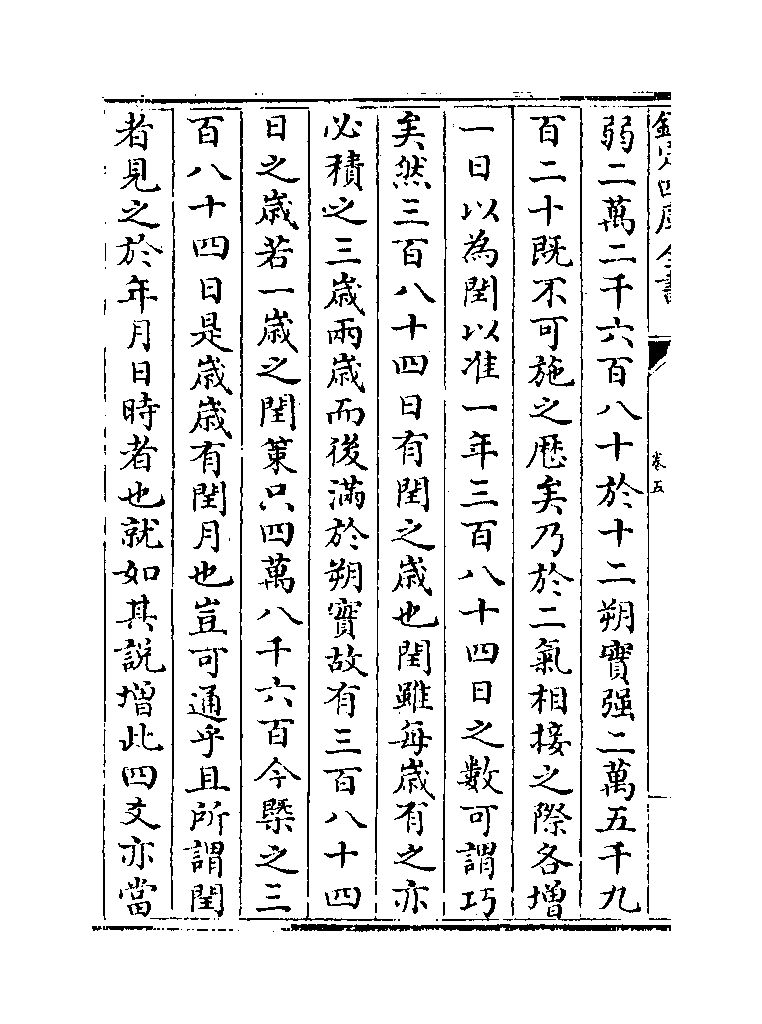 欽定四庫全書
卷五
弱二萬二千六百八十於十二朔實强二萬五千九
百二十既不可施之厯矣乃於二氣相接之際各增
一日以為閏以准一年三百八十四日之數可謂巧
矣然三百八十四日有閏之歳也閏雖每歳有之亦
必積之三歳兩歳而後滿於朔實故有三百八十四
日之歳若一歳之閏策只四萬八千六百今槩之三
百八十四日是歳歳有閏月也豈可通乎且所謂閏
者見之於年月日時者也就如其説增此四爻亦當